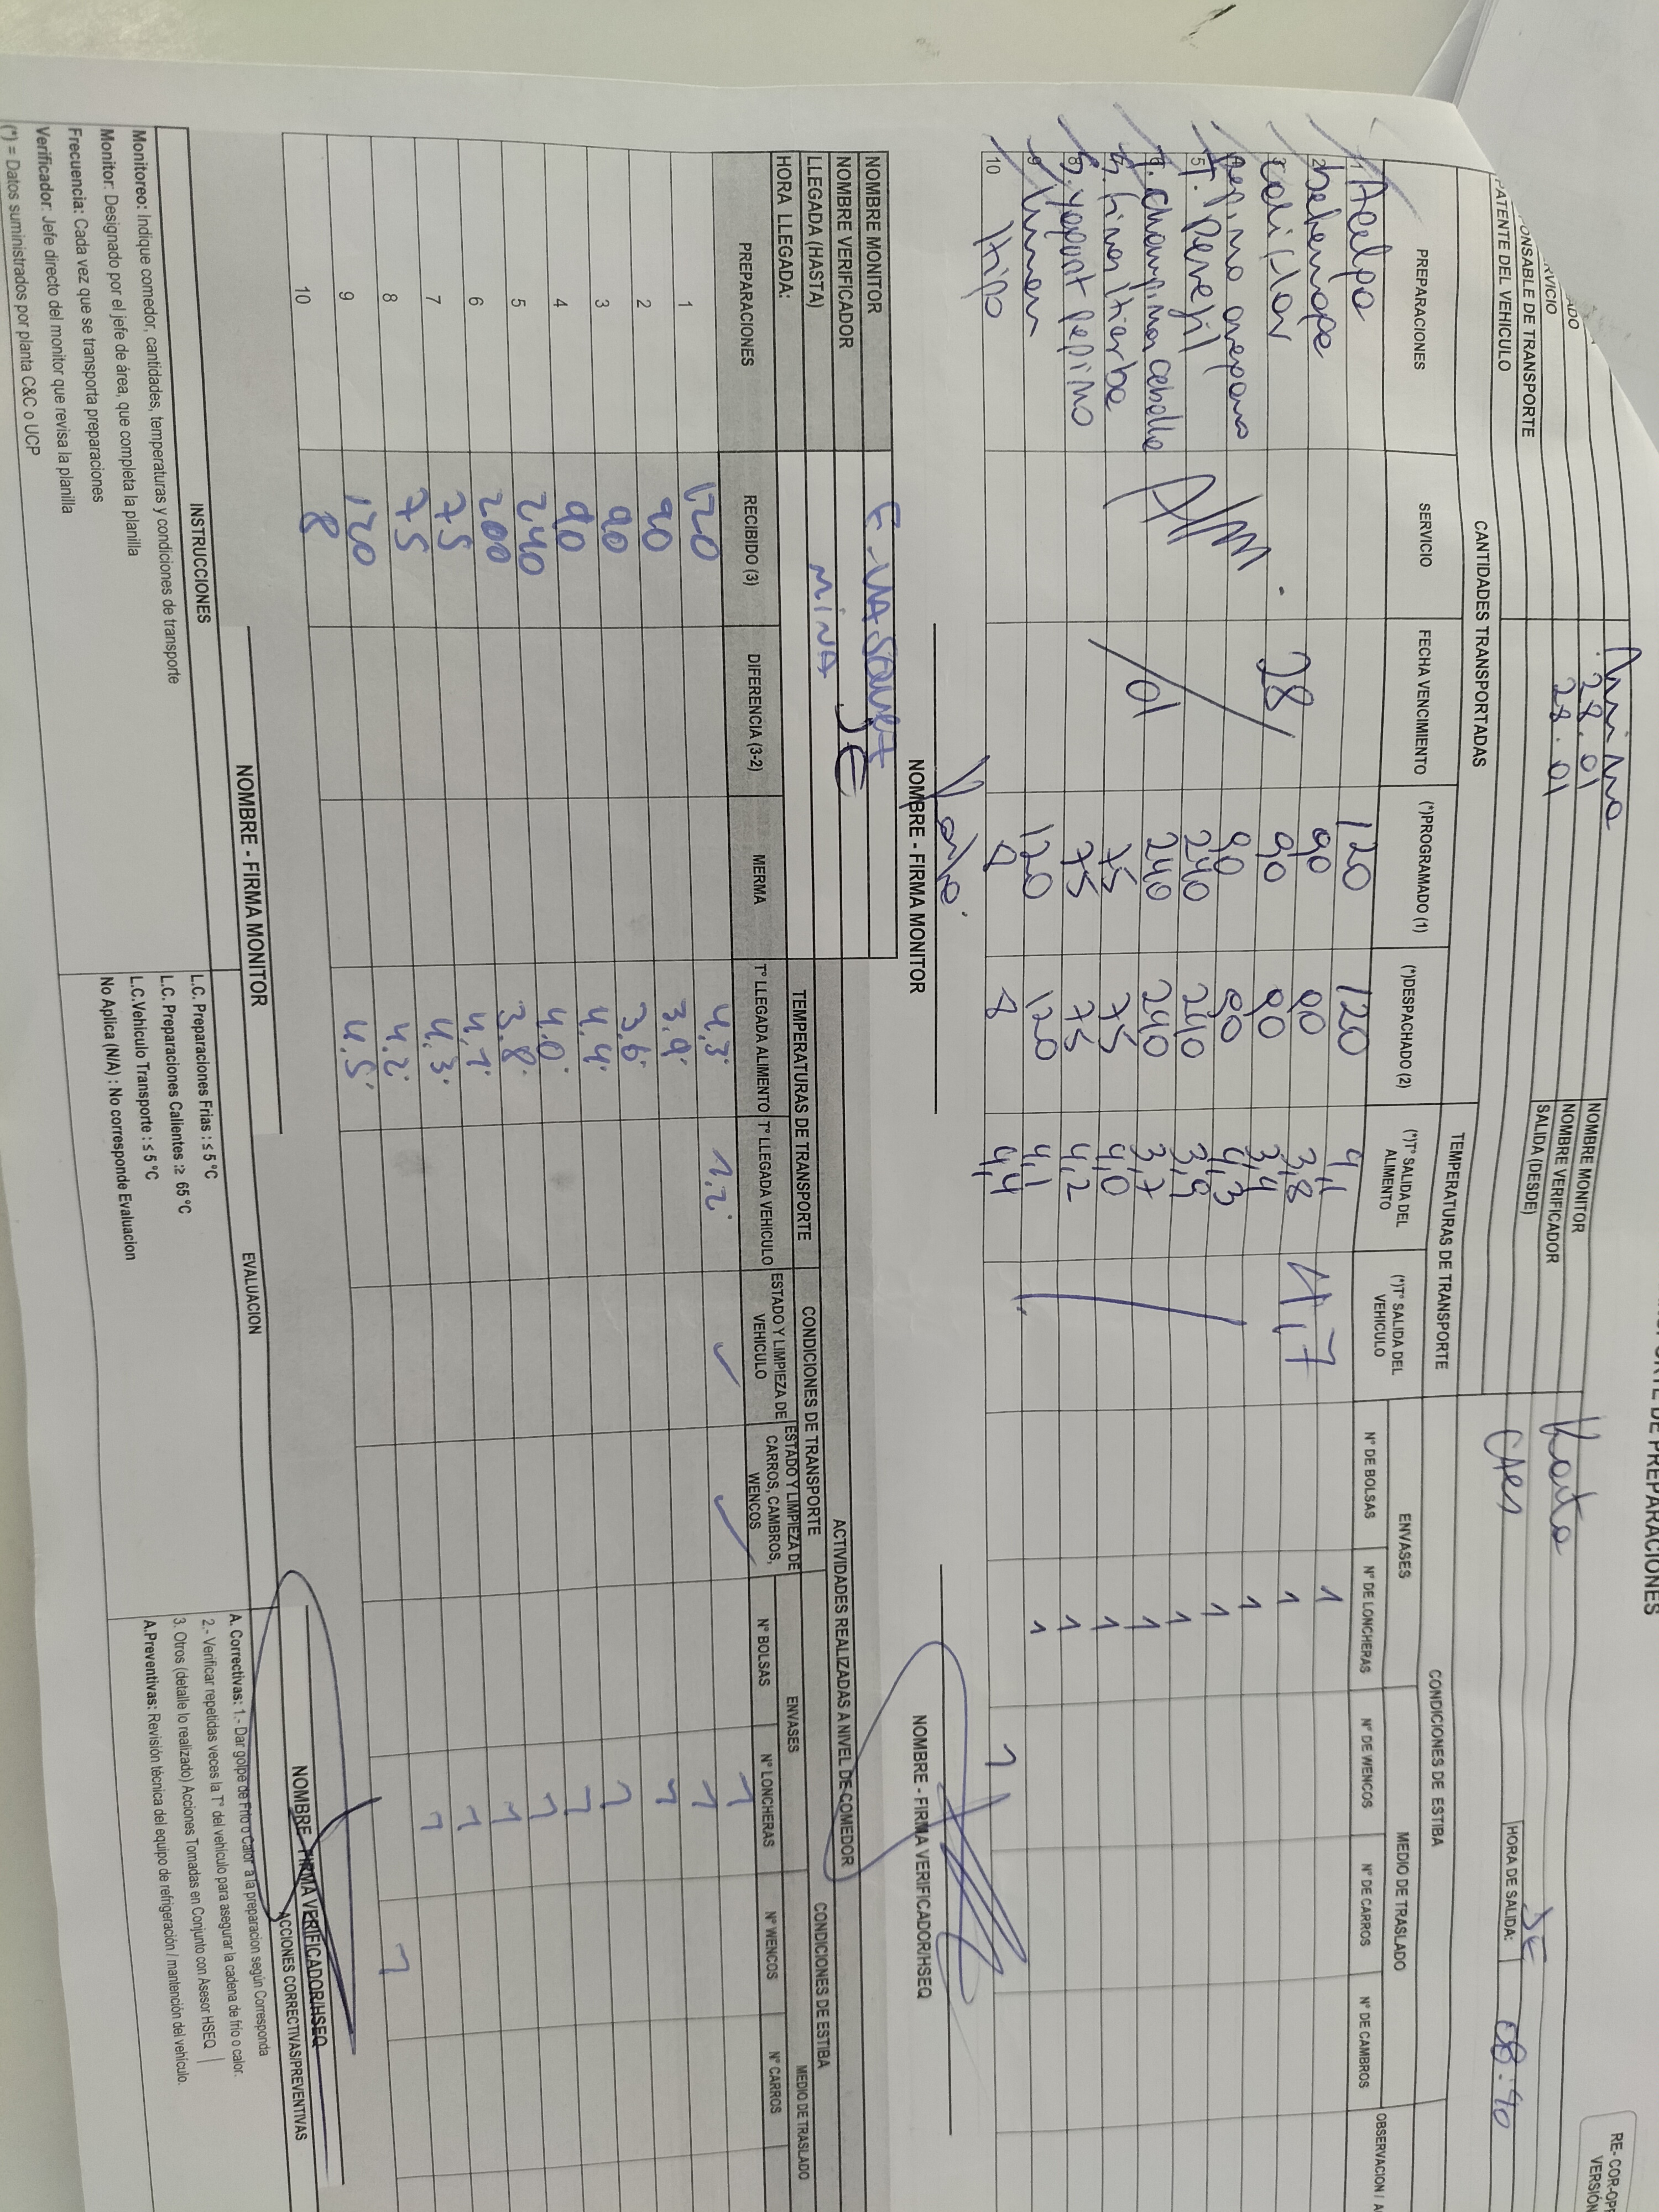 PORTE DE PREPARACIONES
RE- COR-OPR
VERSIÓN
Mina
28.01
VICIO 28.01
ONSABLE DE TRANSPORTE
PATENTE DEL VEHICULO
NOMBRE MONITOR
NOMBRE VERIFICADOR
SALIDA (DESDE)
HORA DE SALIDA: 08:40
CANTIDADES TRANSPORTADAS
TEMPERATURAS DE TRANSPORTE
CONDICIONES DE ESTIBA
ENVASES
MEDIO DE TRASLADO
PREPARACIONES
SERVICIO
FECHA VENCIMIENTO
(*)PROGRAMADO (1)
(*)DESPACHADO (2)
(*)T° SALIDA DEL ALIMENTO
(*)T° SALIDA DEL VEHICULO
N° DE BOLSAS
N° DE LONCHERAS
N° DE WENCOS
N° DE CARROS
N° DE CAMBROS
OBSERVACION /
1 Acelga 120 120 4,1 1
2 betarraga 90 90 3,8 1
3 coliflor 90 90 3,4 1
4 pepino 90 90 4,3 1
5 T. Perejil 240 240 3,9 1
6 T. Champiñon cebolla 240 240 3,7 1
7 75 75 4,0 1
8 yogurt pepino 75 75 4,2 1
9 120 120 4,1 1
10 Hipo 8 8 4,4 1
Alm.
28/01
1,7
NOMBRE - FIRMA MONITOR
NOMBRE - FIRMA VERIFICADOR/HSEQ
NOMBRE MONITOR
NOMBRE VERIFICADOR JE
LLEGADA (HASTA) MINA
HORA LLEGADA:
ACTIVIDADES REALIZADAS A NIVEL DE COMEDOR
TEMPERATURAS DE TRANSPORTE
CONDICIONES DE TRANSPORTE
CONDICIONES DE ESTIBA
ENVASES
MEDIO DE TRASLADO
PREPARACIONES
RECIBIDO (3)
DIFERENCIA (3-2)
MERMA
T° LLEGADA ALIMENTO
T° LLEGADA VEHICULO
ESTADO Y LIMPIEZA DE VEHICULO
ESTADO Y LIMPIEZA DE CARROS, CAMBROS, WENCOS
N° BOLSAS
N° LONCHERAS
N° WENCOS
N° CARROS
1 120 4,3° 1.2° ✓ ✓ 1
2 90 3,9° 1
3 90 3,6° 1
4 90 4,4° 1
5 240 4,0° 1
6 200 3,8° 1
7 75 4,1° 1
8 75 4,3° 1
9 120 4,2° 1
10 8 4,5° 1
NOMBRE - FIRMA MONITOR
NOMBRE - FIRMA VERIFICADOR/HSEQ
INSTRUCCIONES
Monitoreo: Indique comedor, cantidades, temperaturas y condiciones de transporte
Monitor: Designado por el jefe de área, que completa la planilla
Frecuencia: Cada vez que se transporta preparaciones
Verificador: Jefe directo del monitor que revisa la planilla
(*) = Datos suministrados por planta C&C o UCP
EVALUACION
L.C. Preparaciones Frias : ≤ 5 °C
L.C. Preparaciones Calientes :≥ 65 °C
L.C.Vehiculo Transporte : ≤ 5 °C
No Aplica (N/A) : No corresponde Evaluacion
ACCIONES CORRECTIVAS/PREVENTIVAS
A. Correctivas: 1.- Dar golpe de Frio o Calor a la preparacion según Corresponda
2.- Verificar repetidas veces la T° del vehículo para asegurar la cadena de frio o calor.
3. Otros (detalle lo realizado) Acciones Tomadas en Conjunto con Asesor HSEQ
A.Preventivas: Revisión técnica del equipo de refrigeración / mantención del vehículo.